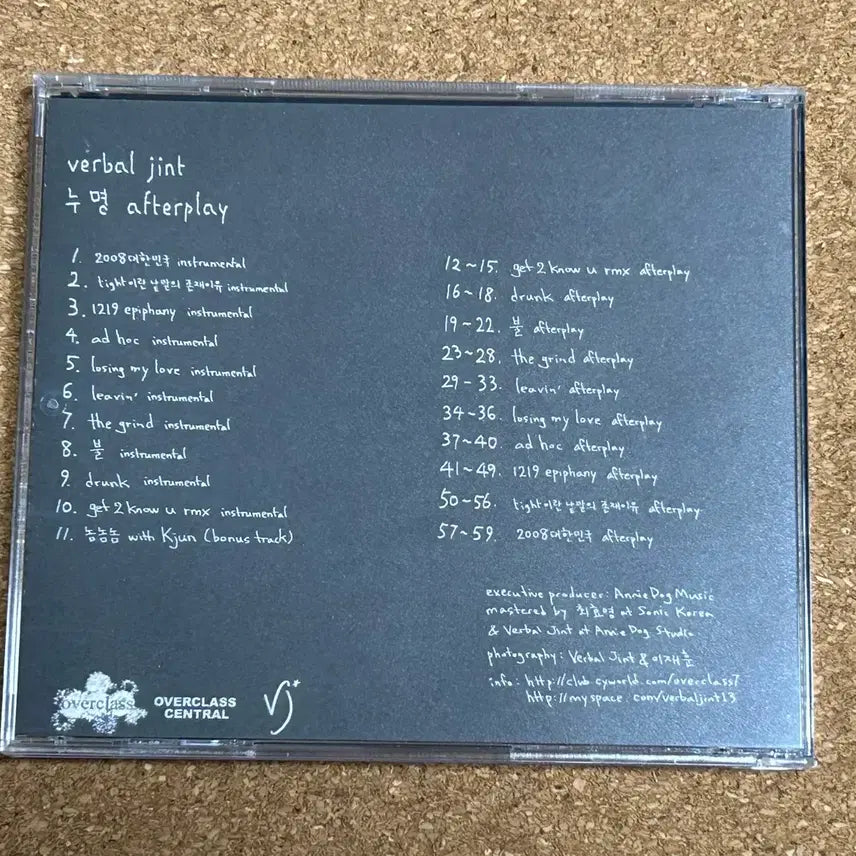 verbal jint
누명 afterplay
1. 2008대한민국 instrumental
2. tight이란 낱말의 존재이유 instrumental
3. 1219 epiphany instrumental
4. ad hoc instrumental
5. losing my love instrumental
6. leavin' instrumental
7. the grind instrumental
8. 불 instrumental
9. drunk instrumental
10. get 2 know u rmx instrumental
11. 놈놈놈 with Kjun (bonus track)
12~15. get 2 know u rmx afterplay
16~18. drunk afterplay
19~22. 불 afterplay
23~28. the grind afterplay
29-33. leavin' afterplay
34~36. losing my love afterplay
37~40. ad hoc afterplay
41~49. 1219 epiphany afterplay
50~56. tight이란 낱말의 존재이유 afterplay
57~59. 2008대한민국 afterplay
executive producer: Annie Dog Music
mastered by 최효영 at Sonic Korea
& Verbal Jint at Annie Dog Studio
photography: Verbal Jint & 이재훈
info: http://club.cyworld.com/overclass7
http://myspace.com/verbaljint13
overclass
OVERCLASS
CENTRAL
vj